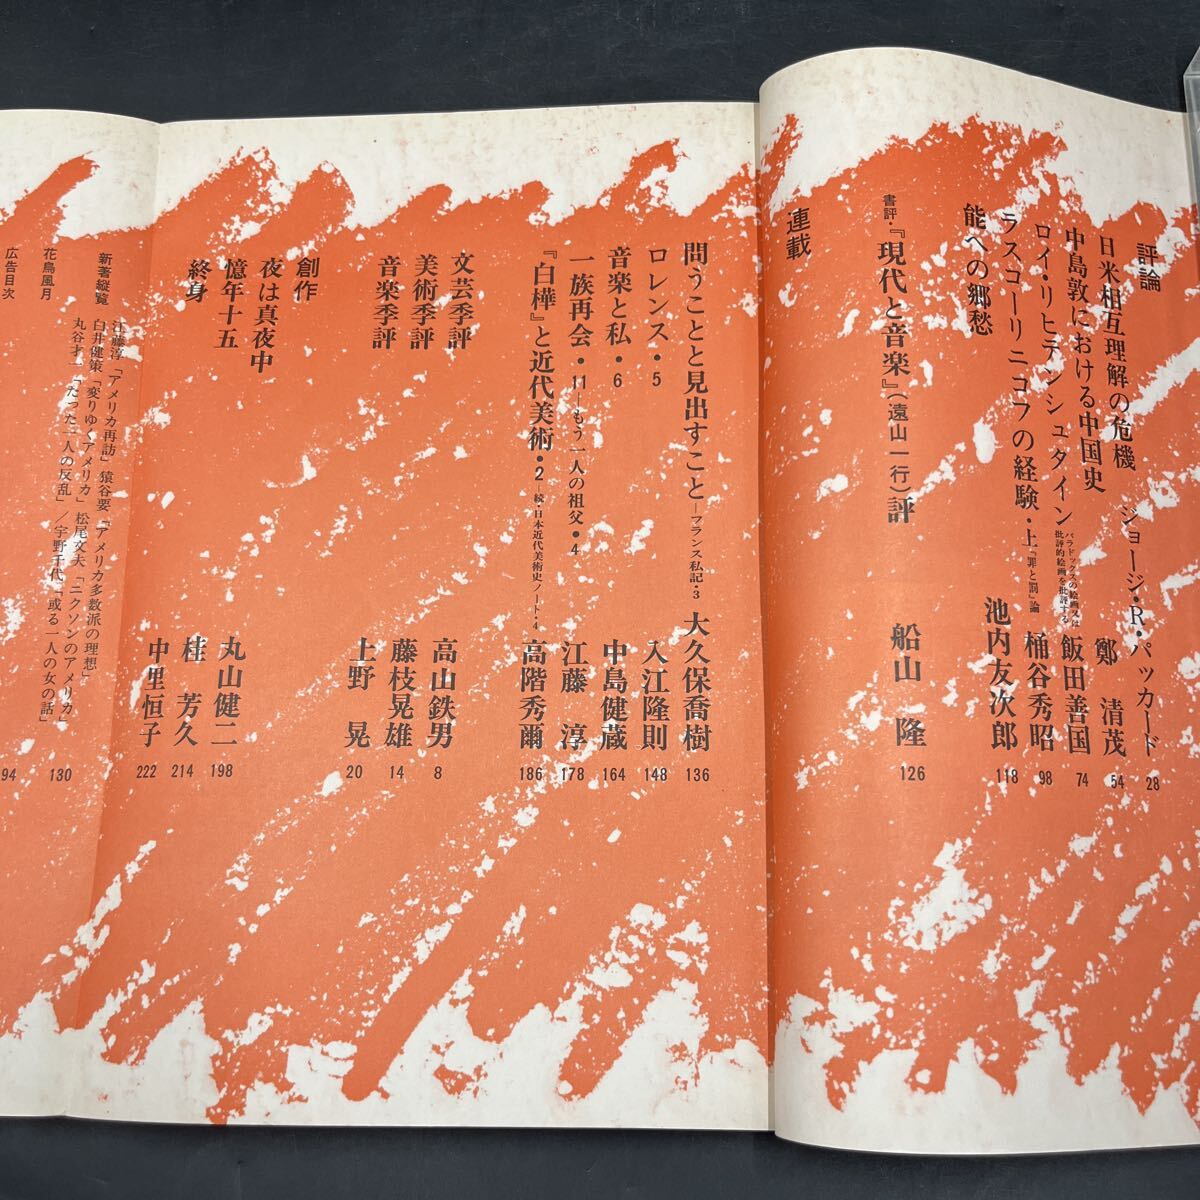 評論
日米相互理解の危機 ジョージ・R・パッカード 28
中島敦における中国史 鄭 清茂 54
ロイ・リヒテンシュタイン パラドックスの絵画又は批評的絵画を批評する 飯田善国 74
ラスコーリニコフの経験・上 『罪と罰』論 桶谷秀昭 98
能への郷愁 池内友次郎 118
書評・『現代と音楽』(遠山一行)評 船山 隆 126
連載
問うことと見出すこと—フランス私記・3 大久保喬樹 136
ロレンス・5 入江隆則 148
音楽と私・6 中島健蔵 164
一族再会・11—もう一人の祖父・4 江藤 淳 178
『白樺』と近代美術・2—続・日本近代美術史ノート・4 高階秀爾 186
文芸季評 高山鉄男 8
美術季評 藤枝晃雄 14
音楽季評 上野 晃 20
創作
夜は真夜中 丸山健二 198
憶年十五 桂 芳久 214
終身 中里恒子 222
新著縦覧 江藤淳「アメリカ再訪」 猿谷要「アメリカ多数派の理想」
白井健策「変りゆくアメリカ」 松尾文夫「ニクソンのアメリカ」
丸谷才一「たった一人の反乱」／宇野千代「或る一人の女の話」
花鳥風月 130
広告目次 94